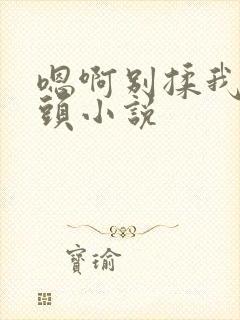 嗯啊别揉我
頭小説
寶瑜